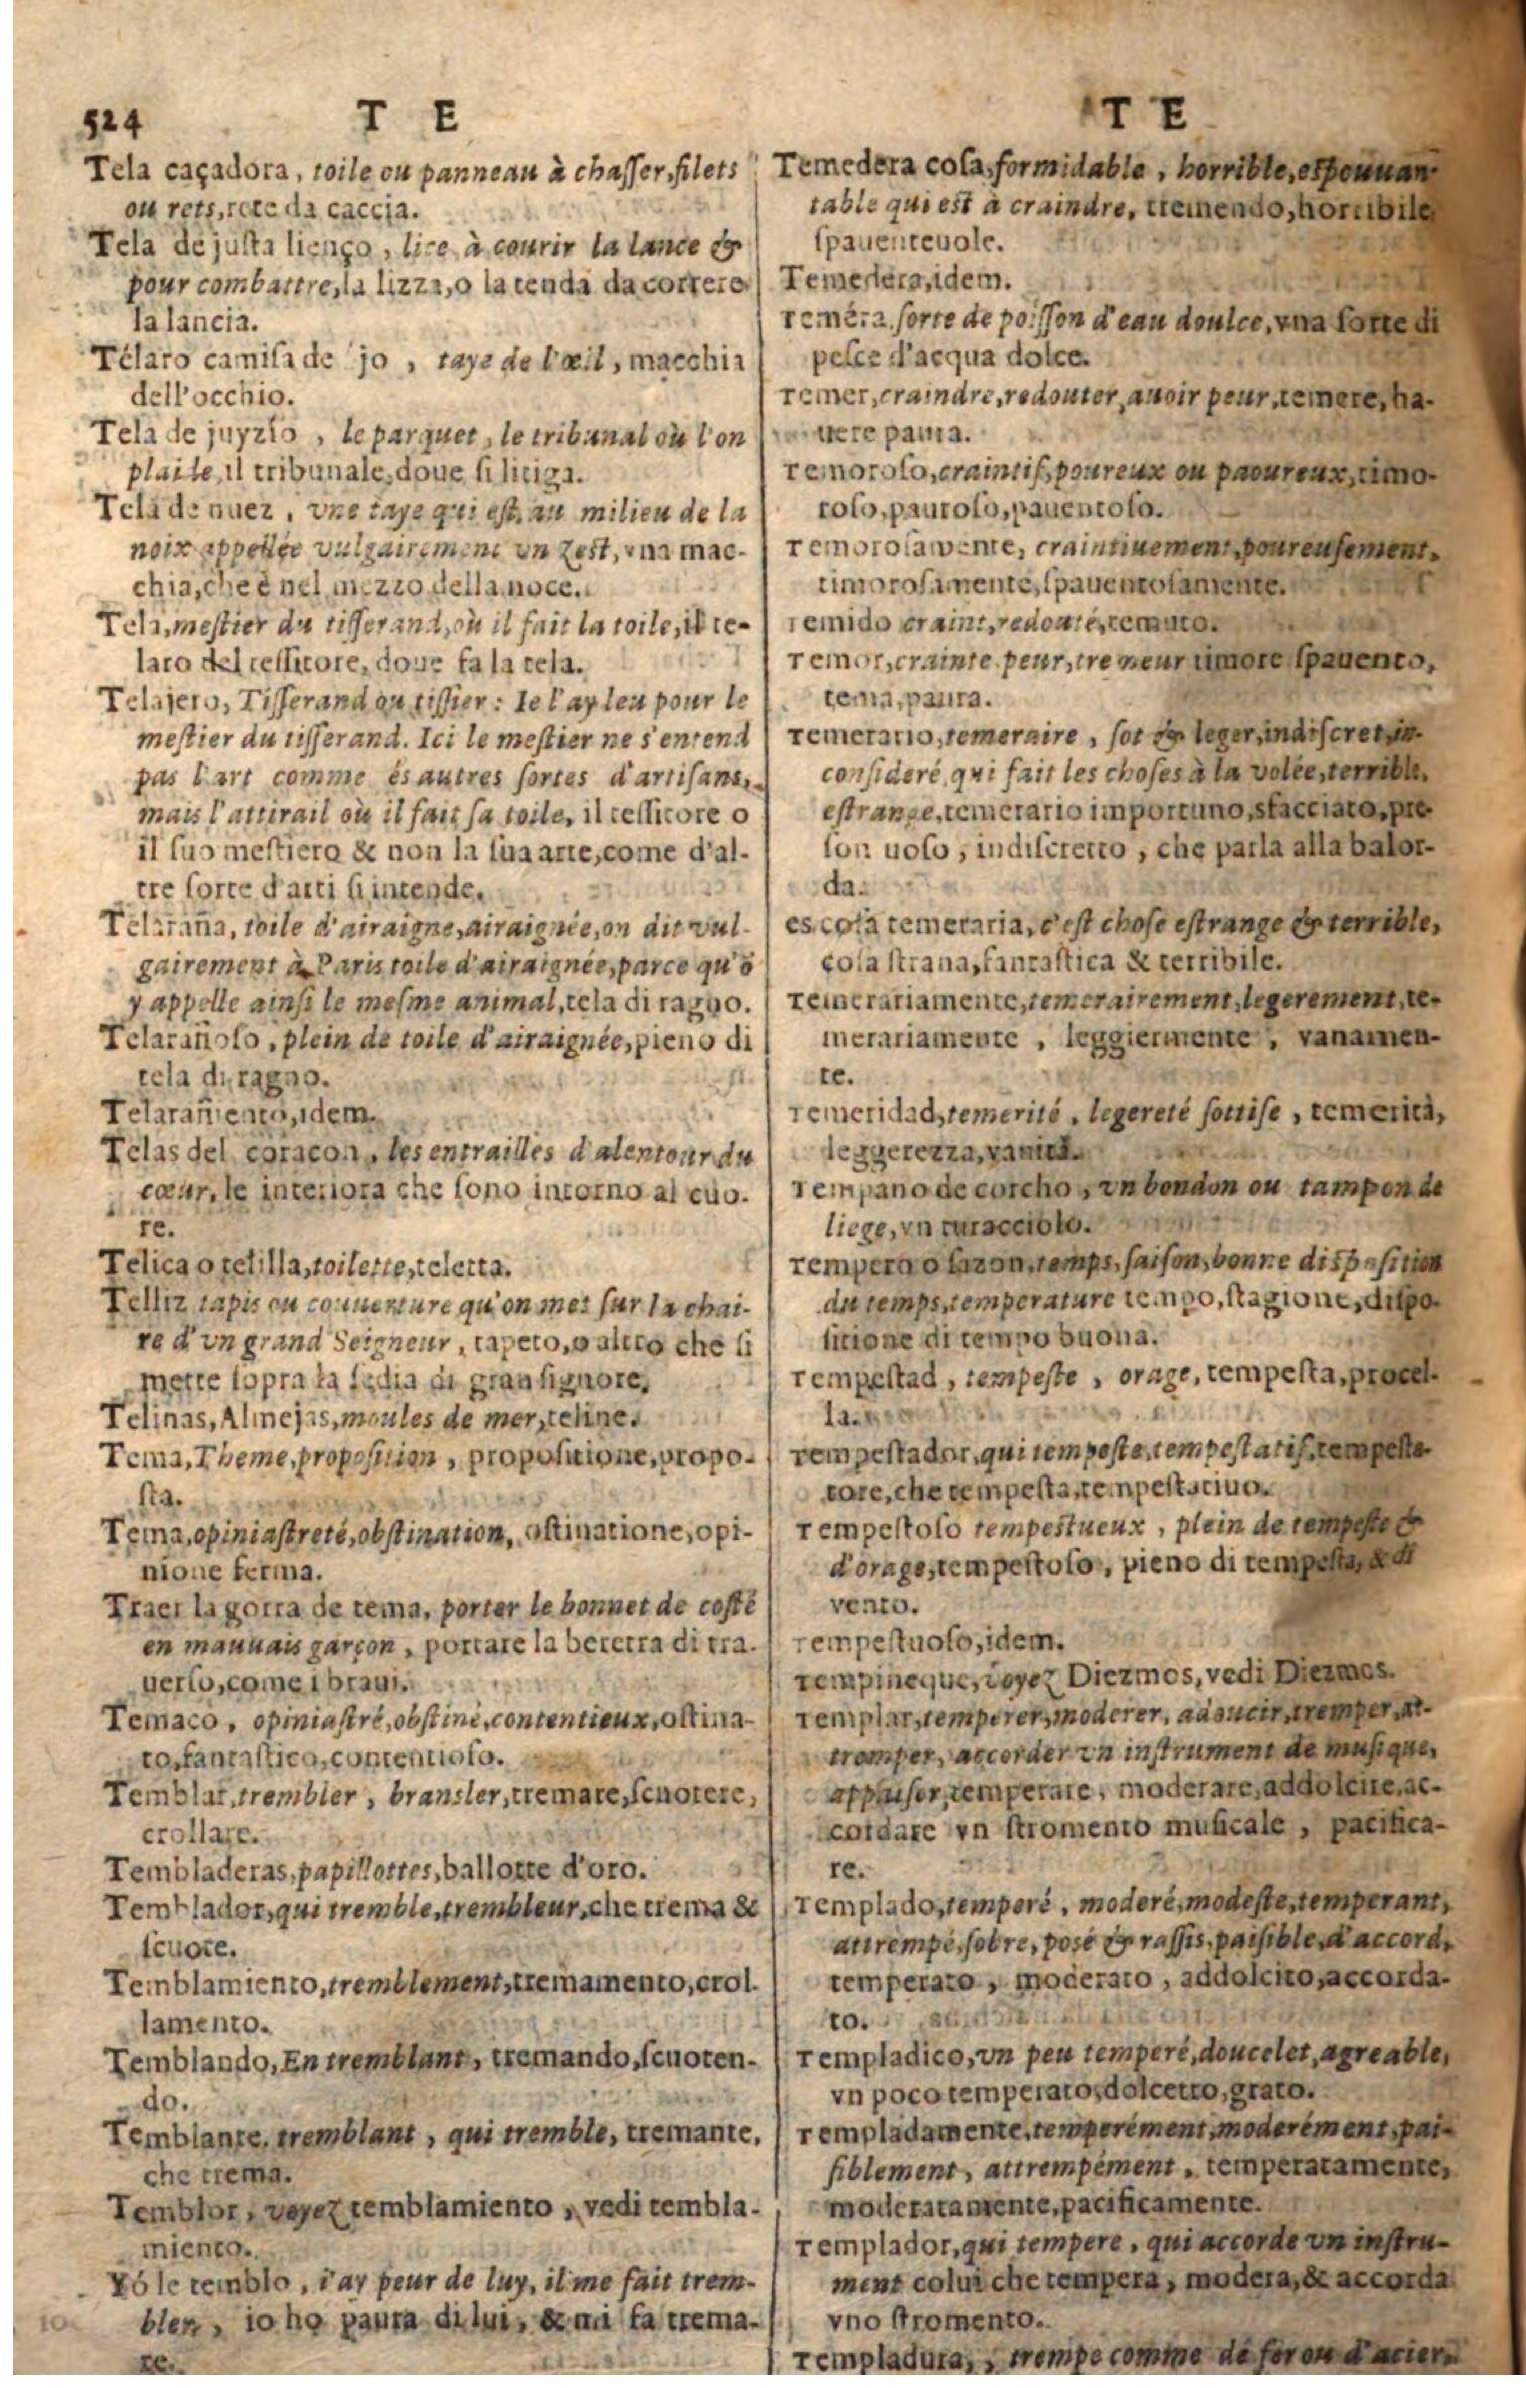 524 T E
Tela caçadora, toile ou panneau à chaſſer, filets
ou rets, rete da caccia.
Tela de juſta lienço, lice à courir la lance &
pour combattre, la lizza, o la tenda da correre
la lancia.
Télaro camiſa de jo, taye de l'œil, macchia
dell'occhio.
Tela de juyzío, le parquet, le tribunal où l'on
plaide, il tribunale, doue ſi litiga.
Tela de nuez, vne taye qui eſt au milieu de la
noix appellée vulgairement vn zeſt, vna mac-
chia, che è nel mezzo della noce.
Tela, meſtier du tiſſerand, où il fait la toile, il te-
laro del teſſitore, doue fa la tela.
Telajero, Tiſſerand ou tiſſier: Ie l'ay leu pour le
meſtier du tiſſerand. Ici le meſtier ne s'entend
pas l'art comme és autres ſortes d'artiſans,
mais l'attirail où il fait ſa toile, il teſſitore o
il ſuo meſtiero & non la ſua arte, come d'al-
tre ſorte d'arti ſi intende.
Telaraña, toile d'airaigne, airaignée, on dit vul-
gairement à Paris toile d'airaignée, parce qu'ō
y appelle ainſi le meſme animal, tela di ragno.
Telarañoſo, plein de toile d'airaignée, pieno di
tela di ragno.
Telarañento, idem.
Telas del coracon, les entrailles d'alentour du
cœur, le interiora che ſono intorno al cuo-
re.
Telica o telilla, toilette, teletta.
Telliz tapis ou couuerture qu'on met ſur la chai-
re d'vn grand Seigneur, tapeto, o altro che ſi
mette ſopra la ſedia di gran ſignore.
Telinas, Almejas, moules de mer, teline.
Tema, Theme, propoſition, propoſitione, propo-
ſta.
Tema, opiniaſtreté, obſtination, oſtinatione, opi-
nione ferma.
Traer la gorra de tema, porter le bonnet de coſté
en mauuais garçon, portare la beretta di tra-
uerſo, come i braui.
Temaco, opiniaſtré, obſtiné, contentieux, oſtina-
to, fantaſtico, contentioſo.
Temblar, trembler, branſler, tremare, ſcuotere,
crollare.
Tembladeras, papillottes, ballotte d'oro.
Temblador, qui tremble, trembleur, che trema &
ſcuote.
Temblamiento, tremblement, tremamento, crol-
lamento.
Temblando, En tremblant, tremando, ſcuoten-
do.
Temblante, tremblant, qui tremble, tremante,
che trema.
Temblor, voyez temblamiento, vedi tembla-
miento.
Yó le temblo, i'ay peur de luy, il me fait trem-
bler, io ho paura di lui, & mi fa trema-
re.
T E
Temedera coſa, formidable, horrible, eſpouuan-
table qui eſt à craindre, tremendo, horribile,
ſpauenteuole.
Temedera, idem.
Teméra, ſorte de poiſſon d'eau doulce, vna ſorte di
peſce d'acqua dolce.
Temer, craindre, redouter, auoir peur, temere, ha-
uere paura.
Temoroſo, craintif, poureux ou paoureux, timo-
roſo, pauroſo, pauentoſo.
Temoroſamente, craintiuement, poureuſement,
timoroſamente, ſpauentoſamente.
Temido craint, redouté, temuto.
Temor, crainte peur, tremeur timore ſpauento,
tema, paura.
Temerario, temeraire, ſot & leger, indiſcret, in-
conſideré, qui fait les choſes à la volée, terrible,
eſtrange, temerario importuno, sfacciato, pre-
ſontuoſo, indiſcretto, che parla alla balor-
da.
es coſa temeraria, c'eſt choſe eſtrange & terrible,
coſa ſtrana, fantaſtica & terribile.
Temerariamente, temerairement, legerement, te-
merariamente, leggiermente, vanamen-
te.
Temeridad, temerité, legereté ſottiſe, temerità,
leggerezza, vanità.
Tempano de corcho, vn bondon ou tampon de
liege, vn turacciolo.
Tempero o ſazon, temps, ſaiſon, bonne diſpoſition
du temps, temperature tempo, ſtagione, diſpo-
ſitione di tempo buona.
Tempeſtad, tempeſte, orage, tempeſta, procel-
la.
Tempeſtador, qui tempeſte, tempeſtatif, tempeſta-
tore, che tempeſta, tempeſtatiuo.
Tempeſtoſo tempeſtueux, plein de tempeſte &
d'orage, tempeſtoſo, pieno di tempeſta, & di
vento.
Tempeſtuoſo, idem.
Tempineque, voyez Diezmos, vedi Diezmos.
Templar, temperer, moderer, adoucir, tremper, at-
tremper, accorder vn inſtrument de muſique,
appaiſer, temperare, moderare, addolcire, ac-
cordare vn ſtromento muſicale, pacifica-
re.
Templado, temperé, moderé, modeſte, temperant,
attrempé, ſobre, poſé & raſſis, paiſible, d'accord,
temperato, moderato, addolcito, accorda-
to.
Templadico, vn peu temperé, doucelet, agreable,
vn poco temperato, dolcetto, grato.
Templadamente, temperément, moderément, pai-
ſiblement, attrempément, temperatamente,
moderatamente, pacificamente.
Templador, qui tempere, qui accorde vn inſtru-
ment colui che tempera, modera, & accorda
vno ſtromento.
Templadura, trempe comme de fer ou d'acier,